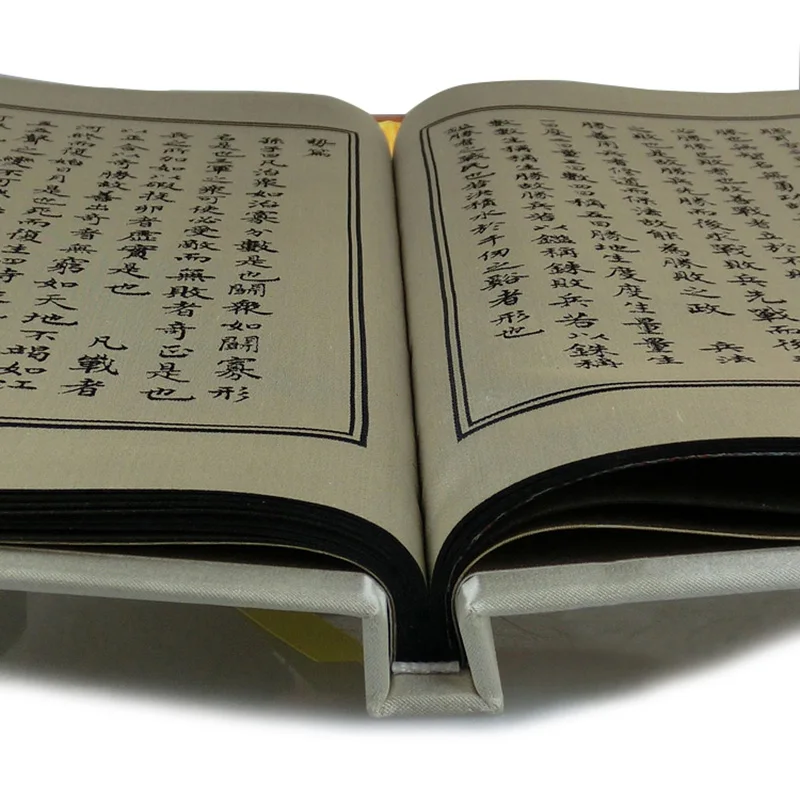 勝也故善戰者立於不敗
之敗也是故勝兵先勝而後求戰敗兵先戰而後
勝善用兵者修道而保法故能為勝敗之政 兵法
一曰度二曰量三曰數四曰稱五曰勝地生度度生量量生
數數生稱稱生勝故勝兵若以鎰稱銖敗兵若以銖稱
鎰勝者之戰民也若決積水於千仞之谿者形也
勢篇
孫子曰凡治眾如治寡分數是也鬪眾如鬪寡形
名是也三軍之眾可使必受敵而無敗者奇正是也
兵之所加如以碬投卵者虛實是也 凡戰者
以正合以奇勝故善出奇者無窮如天地不竭如江
河終而復始日月是也死而復生四時
五聲之變不可